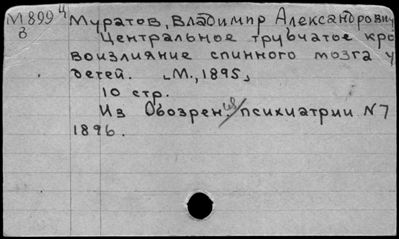 М899ц Муратов, Владимир Александрович
в Центральное трубчатое кро
воизлияние спинного мозга у
детей. [М., 1895]
10 стр.
Из Обозрения психиатрии N7
1896.